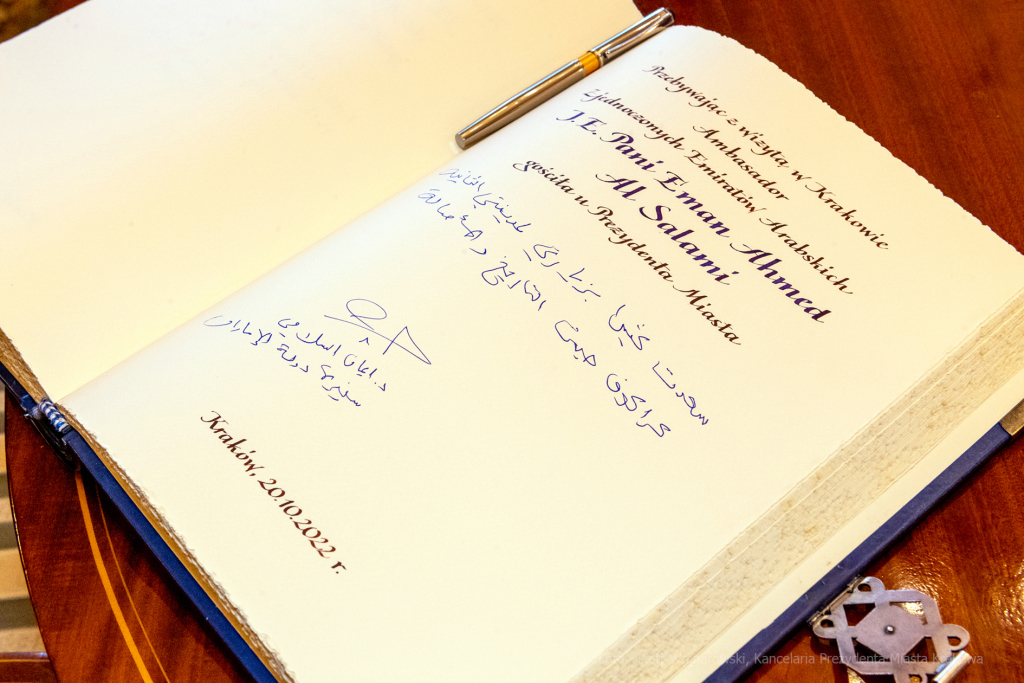 Przebywając z wizytą w Krakowie
Ambasador
Zjednoczonych Emiratów Arabskich
J.E. Pani Eman Ahmed
Al Salami
gościła u Prezydenta Miasta
سعدت كثيرا بزيارتي لمدينتي الثانية
كراكوف حيث التاريخ
د. إيمان السلامي
سفيرة دولة الإمارات
Kraków, 20.10.2022 r.
Kancelaria Prezydenta Miasta Krakowa